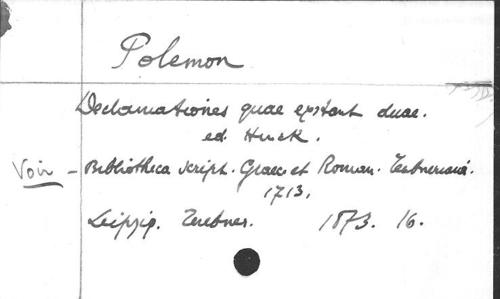 Polemon
Declamationes quae exstant duae.
ed. Hinck.
Voir - Bibliotheca script. Graec. et Roman. Teubneriana.
1713.
Leipzig. Teubner. 1873. 16.